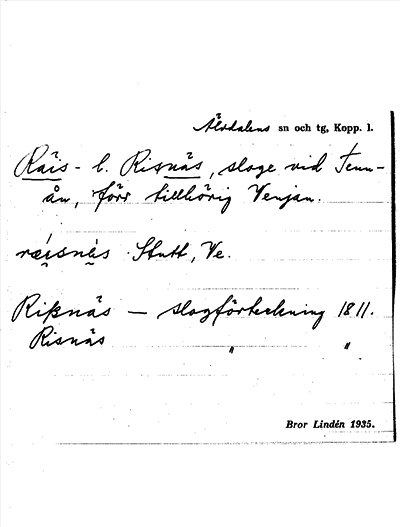 Älvdalens sn och tg, Kopp. l.
Räis- l. Risnäs, sloge vid Tenn-
ån, förr tillhörig Venjan.
ræi̯snäs Stutt, Ve.
Riksnäs — slogförteckning 1811.
Risnäs " "
Bror Lindén 1935.